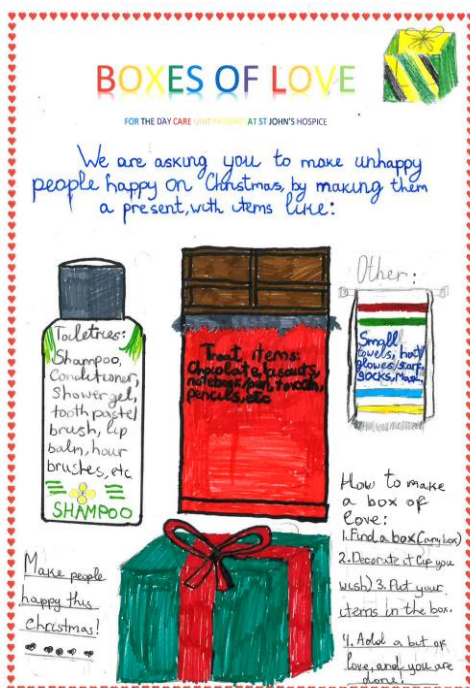 BOXES OF LOVE
FOR THE DAY CARE UNIT PATIENTS AT ST JOHN'S HOSPICE
We are asking you to make unhappy
people happy on Christmas, by making them
a present, with items like:
Toiletries:
Shampoo,
Conditioner,
Shower gel,
tooth paste/
brush, lip
balm, hair
brushes, etc
SHAMPOO
Treat items:
Chocolate, biscuits,
notebook/pen, torch,
pencils, etc
Other:
Small
towels, hat/
gloves/scarf,
socks,
How to make
a box of
love:
1. Find a box (any box)
2. Decorate it (if you
wish) 3. Put your
items in the box.
4. Add a bit of
love, and you are
done!
Make people
happy this
christmas!